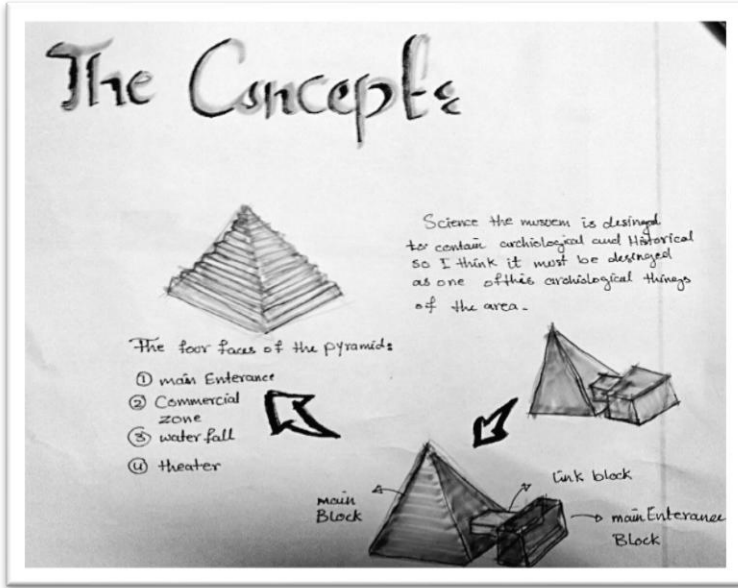 The Concept:
Science the museem is desinged
to contain archiological and Historical
so I think it must be desinged
as one of this archiological things
of the area.
The foor faces of the pyramids
① main Enterance
② Commercial
zone
③ water fall
④ theater
main
Block
Link block
main Enterance
Block